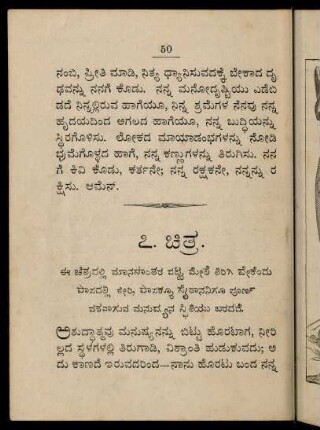 50
ನಂಬಿ, ಪ್ರೀತಿ ಮಾಡಿ, ನಿತ್ಯ ಧ್ಯಾನಿಸುವದಕ್ಕೆ ಬೇಕಾದ ದೃ
ಢವನ್ನು ನನಗೆ ಕೊಡು. ನನ್ನ ಮನೋದೃಷ್ಟಿಯು ಎಡೆಬಿ
ಡದೆ ನಿನ್ನಲ್ಲಿರುವ ಹಾಗೆಯೂ, ನಿನ್ನ ಶ್ರಮೆಗಳ ನೆನವು ನನ್ನ
ಹೃದಯದಿಂದ ಅಗಲದ ಹಾಗೆಯೂ, ನನ್ನ ಬುದ್ಧಿಯನ್ನು
ಸ್ಥಿರಗೊಳಿಸು. ಲೋಕದ ಮಾಯಾಡಂಭಗಳನ್ನು ನೋಡಿ
ಭ್ರಮೆಗೊಳ್ಳದ ಹಾಗೆ, ನನ್ನ ಕಣ್ಣುಗಳನ್ನು ತಿರುಗಿಸು. ನನ
ಗೆ ಕಿವಿ ಕೊಡು, ಕರ್ತನೇ; ನನ್ನ ರಕ್ಷಕನೇ, ನನ್ನನ್ನು ರ
ಕ್ಷಿಸು. ಆಮೆನ್.
೭. ಚಿತ್ರ.
ಈ ಚಿತ್ರದಲ್ಲಿ ಮಾನಸಾಂತರ ಪಟ್ಟ ಮೇಲೆ ತಿರಿಗಿ ಬೇಕೆಂದು
ಪಾಪದಲ್ಲಿ ಸೇರಿ, ಪಾಪಕ್ಕೂ ಸೈತಾನನಿಗೂ ಪೂರ್ಣ
ವಶವಾಗುವ ಮನುಷ್ಯನ ಸ್ಥಿತಿಯು ಬರದದೆ.
ಅಶುದ್ಧಾತ್ಮವು ಮನುಷ್ಯನನ್ನು ಬಿಟ್ಟು ಹೊರಟಾಗ, ನೀರಿ
ಲ್ಲದ ಸ್ಥಳಗಳಲ್ಲಿ ತಿರುಗಾಡಿ, ವಿಶ್ರಾಂತಿ ಹುಡುಕುವದು; ಅ
ದು ಕಾಣದೆ ಇರುವದರಿಂದ—ನಾನು ಹೊರಟು ಬಂದ ನನ್ನ